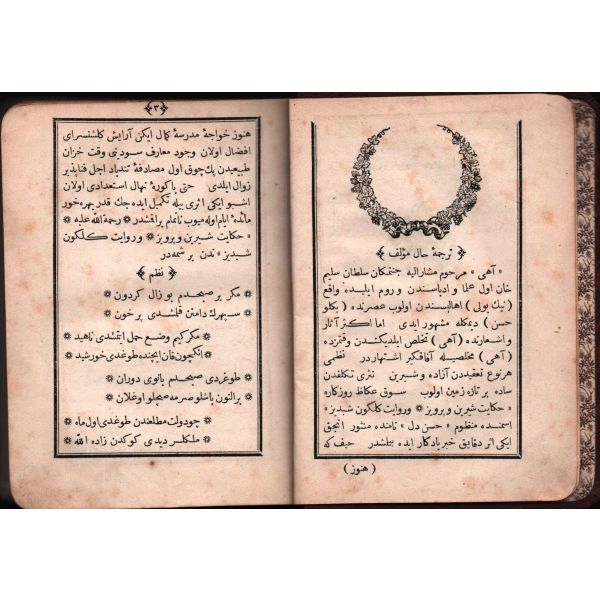 ﴿ ترجمهٔ حال مؤلف ﴾
« آهی » مرحوم مشارالیه جنتمکان سلطان سلیم
خان اول علما و ادباسندن و روم ایلیده واقع
( نیك بولی ) اهالیسندن اولوب عصرنده ( بكلو
حسن ) دیمكله مشهور ایدی اما اكثر آثار
و اشعارنده ( آهی ) تخلص ایلدیكندن وقتمزده
( آهی ) مخلصیله آفاقكیر اشتهاردر نظمی
هرنوع تعقیددن آزاده و شیرین نثری تكلفدن
ساده بر تازه زمین اولوب سوق عكاظ روزكاره
« حكایت شیرین و پرویز ❊ وروایت كلكون شبدیز »
اسمنده منظوم « حسن دل » نامنده منثور انجق
ایكی اثر دقایق خبر یادكار ایده بتلشدر حیف كه
( هنوز )
﴿ ٣ ﴾
هنوز خواجهٔ مدرسهٔ كمال ایكن آرایش كلشنسرای
افضال اولان وجود معارف سودینی وقت خزان
طبیعیدن پك چوق اول مصادفهٔ تندباد اجل فناپذیر
زوال ایلدی حتی باكورهٔ نهال استعدادی اولان
اشبو ایكی اثری بیله تكمیل ایده جك قدر بهره‌خور
مائدهٔ انام اوله‌میوب ناتمام براقمشدر ❊ رحمة الله علیه ❊
« حكایت شیرین و پرویز ❊ وروایت كلكون
شبدیز » ندن بر شمه‌در
﴿ نظم ﴾
❊ مكر بر صبحدم بو زال كردون ❊
❊ سپهرك دامنن قلمشدی پر خون ❊
❊ مكر كیم وضع حمل ایتمشدی ناهید ❊
❊ انكچون قان ایچنده طوغدی خورشید ❊
❊ طوغردی صبحدم بانوی دوران ❊
❊ بر التون باشلو صرمه صچلو اوغلان ❊
❊ چو دولت مطلعندن طوغدی اول ماه ❊
❊ ملكلر دیدی كوكدن زاده الله ❊